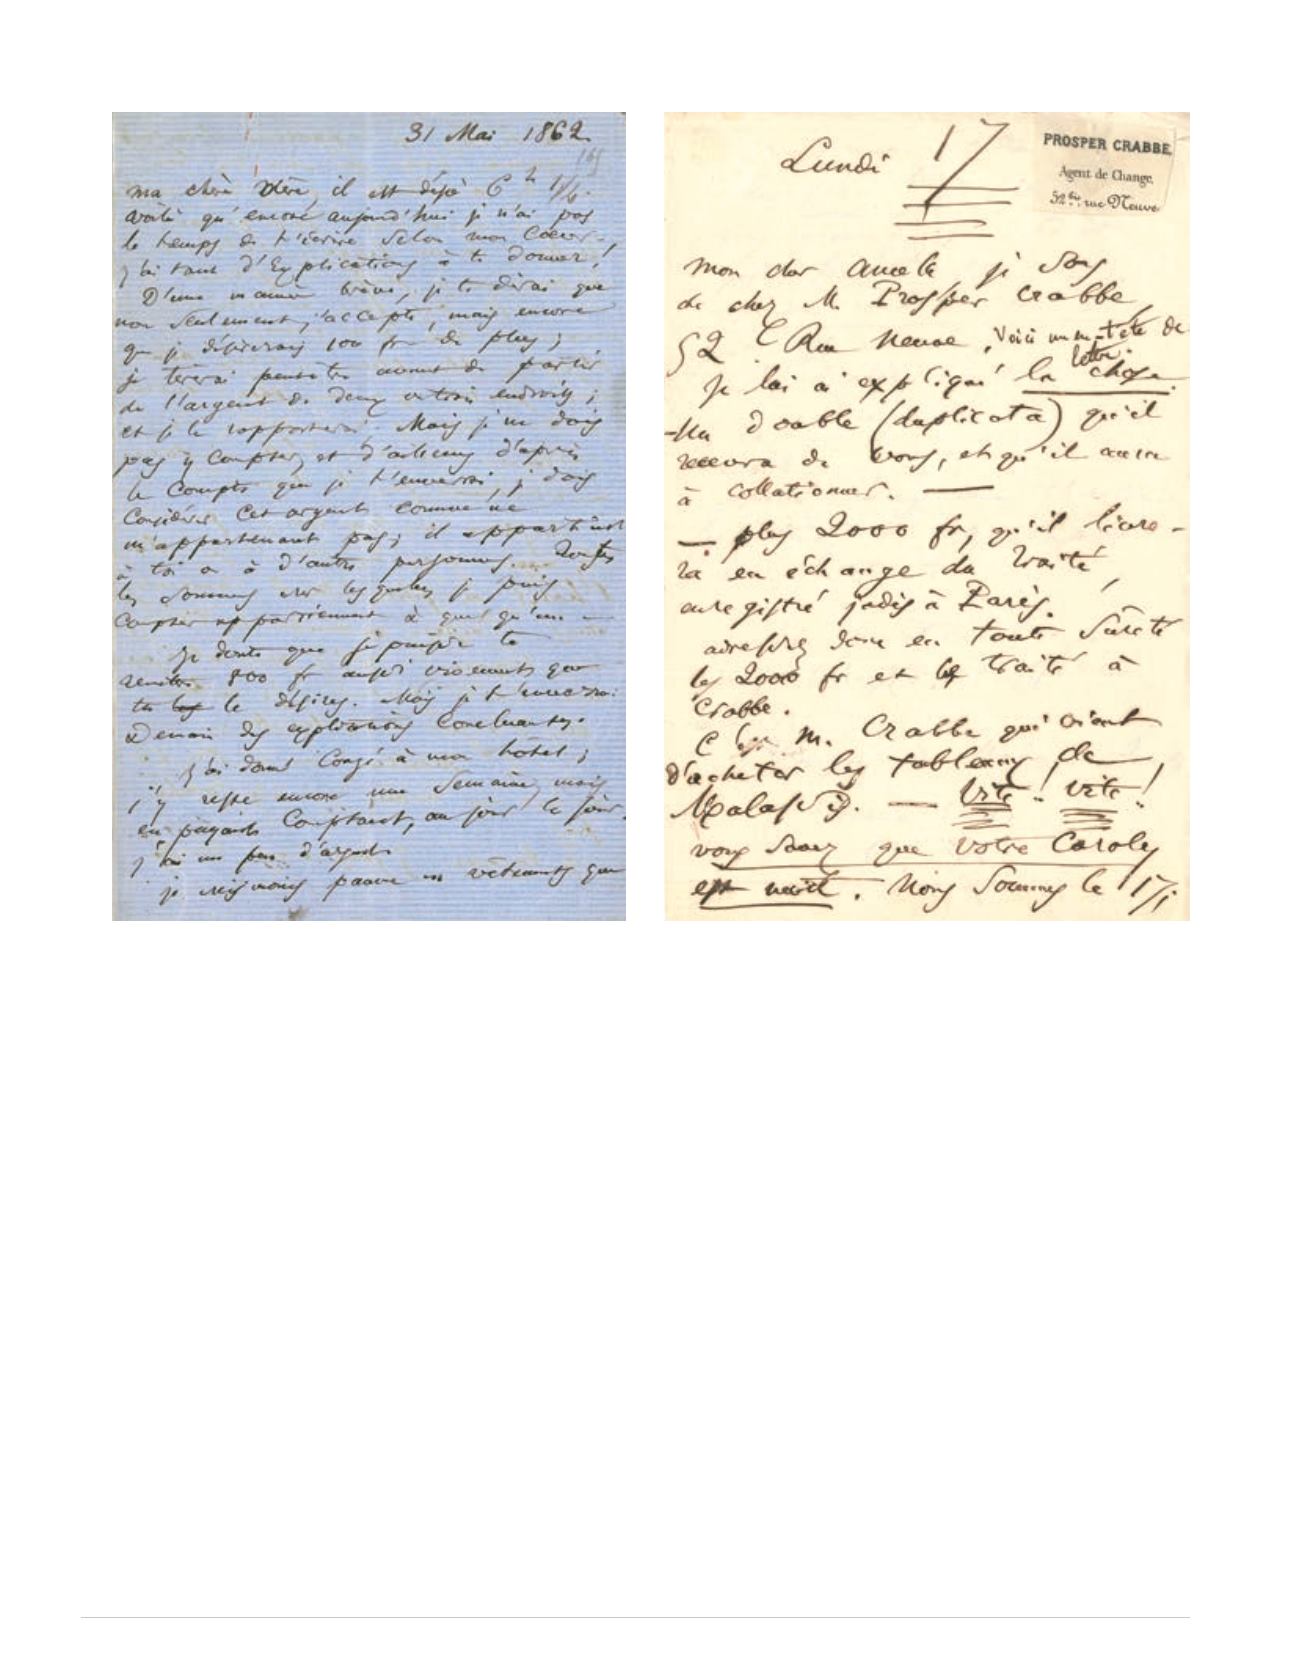 31 Mai 1862.
ma chère Mère, il est déjà 6 h 1/2.
voilà qu'encore aujourd'hui je n'ai pas
le temps de t'écrire selon mon Coeur.
j'ai tant d'Explications à te donner !
D'une manière brève, je te dirai que
non seulement j'accepte, mais encore
que je désirerais 100 fr de plus ;
je tirerai peut-être avant de partir
de l'argent de deux ou trois endroits ;
et je le rapporterai. Mais je ne dois
pas y compter, et d'ailleurs d'après
le Compte que je t'enverrai, je dois
Considérer cet argent comme ne
m'appartenant pas ; il appartient
à toi ou à d'autres personnes. Toutes
les sommes sur lesquelles je puis
Compter appartiennent à quelqu'un —
Je doute que je puisse te
rendre 800 fr aussi vivement que
tu le désires. Mais je t'enverrai
Demain des explications Concluantes.
J'ai donné Congé à mon hôtel ;
j'y reste encore une Semaine, mais
en payant Comptant, au jour le jour.
j'ai un peu d'argent.
je suis pauvre en vêtements que
Lundi 17
PROSPER CRABBE,
Agent de Change,
52 bis rue Neuve
mon cher Ancelle, je sors
de chez M. Prosper Crabbe,
52 Rue Neuve. Voici un en-tête de
lettre.
Je lui ai expliqué la chose.
— Un double (duplicata) qu'il
recevra de vous, et qu'il aura
à collationner. —
— plus 2000 fr, qu'il livre-
ra en échange du traité,
enregistré jadis à Paris.
adressez donc en toute sûreté
les 2000 fr et le traité à
Crabbe.
C'est M. Crabbe qui vient
d'acheter les tableaux de
Malassis. — Vite ! vite !
vous savez que votre Caroly
est . Nous sommes le 17